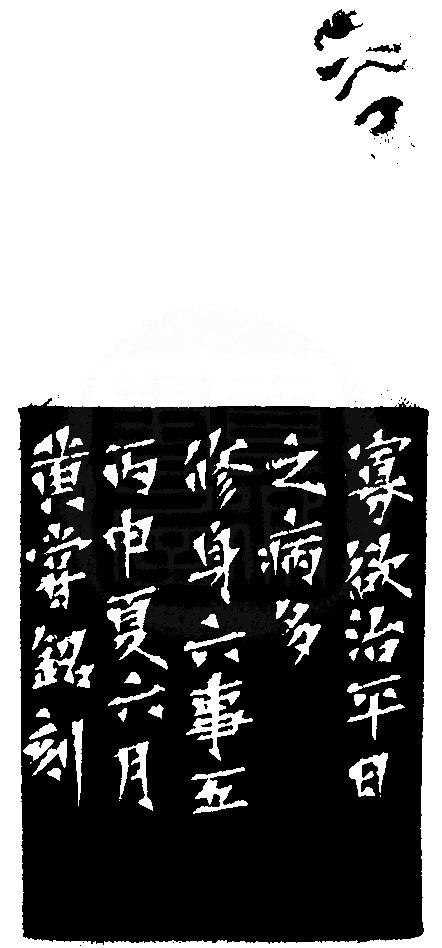 寡欲治平日
之病多
修身六事五
丙申夏六月
黃嘗銘刻